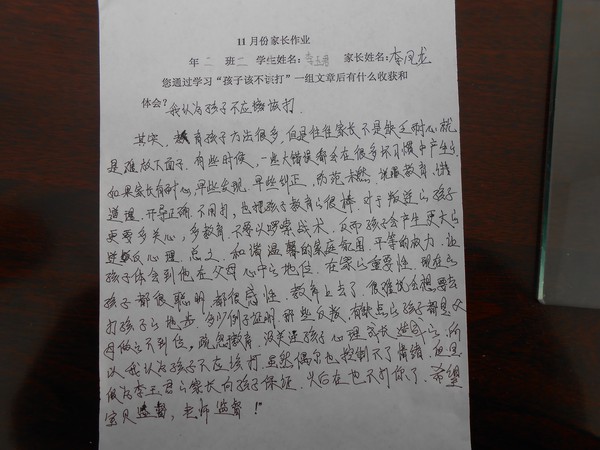 11月份家长作业
年 二 班 二 学生姓名: 李玉君 家长姓名: 李凤龙
您通过学习“孩子该不该打”一组文章后有什么收获和
体会? 我认为孩子不应该打.
其实,教育孩子方法很多,但是往往家长不是缺乏耐心就
是难放下面子.有些时候,一些大错误都会在很多坏习惯中产生的
如果家长有耐心,早些发现.早些纠正,防范未然.说服教育,讲
道理.开导正确.不用打,也把孩子教育的很棒.对于叛逆的孩子
更要多关心,多教育.不要以啰嗦战术.反而孩子会产生更大的
逆叛反心理.总之.和谐温馨的家庭氛围.平等的权力.让
孩子体会到他在父母心中的地位.在家的重要性.现在的
孩子都很聪明.都很感性.教育上去了.很难会想要去
打孩子的地步.多少例子证明.那些反叛.有缺点的孩子都是父
母做的不到位,疏忽教育.没关注孩子心理家长造成的.所
以我认为孩子不应该打.虽然偶尔也控制不了情绪.但是
做为李玉君的家长向孩子保证.以后在也不打你了.希望
宝贝监督,老师监督!